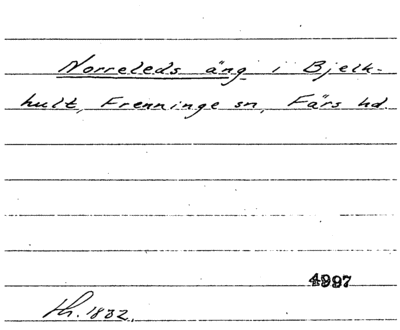 Norreleds äng i Bjelk-
hult, Frenninge sn, Färs hd.
4997
lh. 1832.